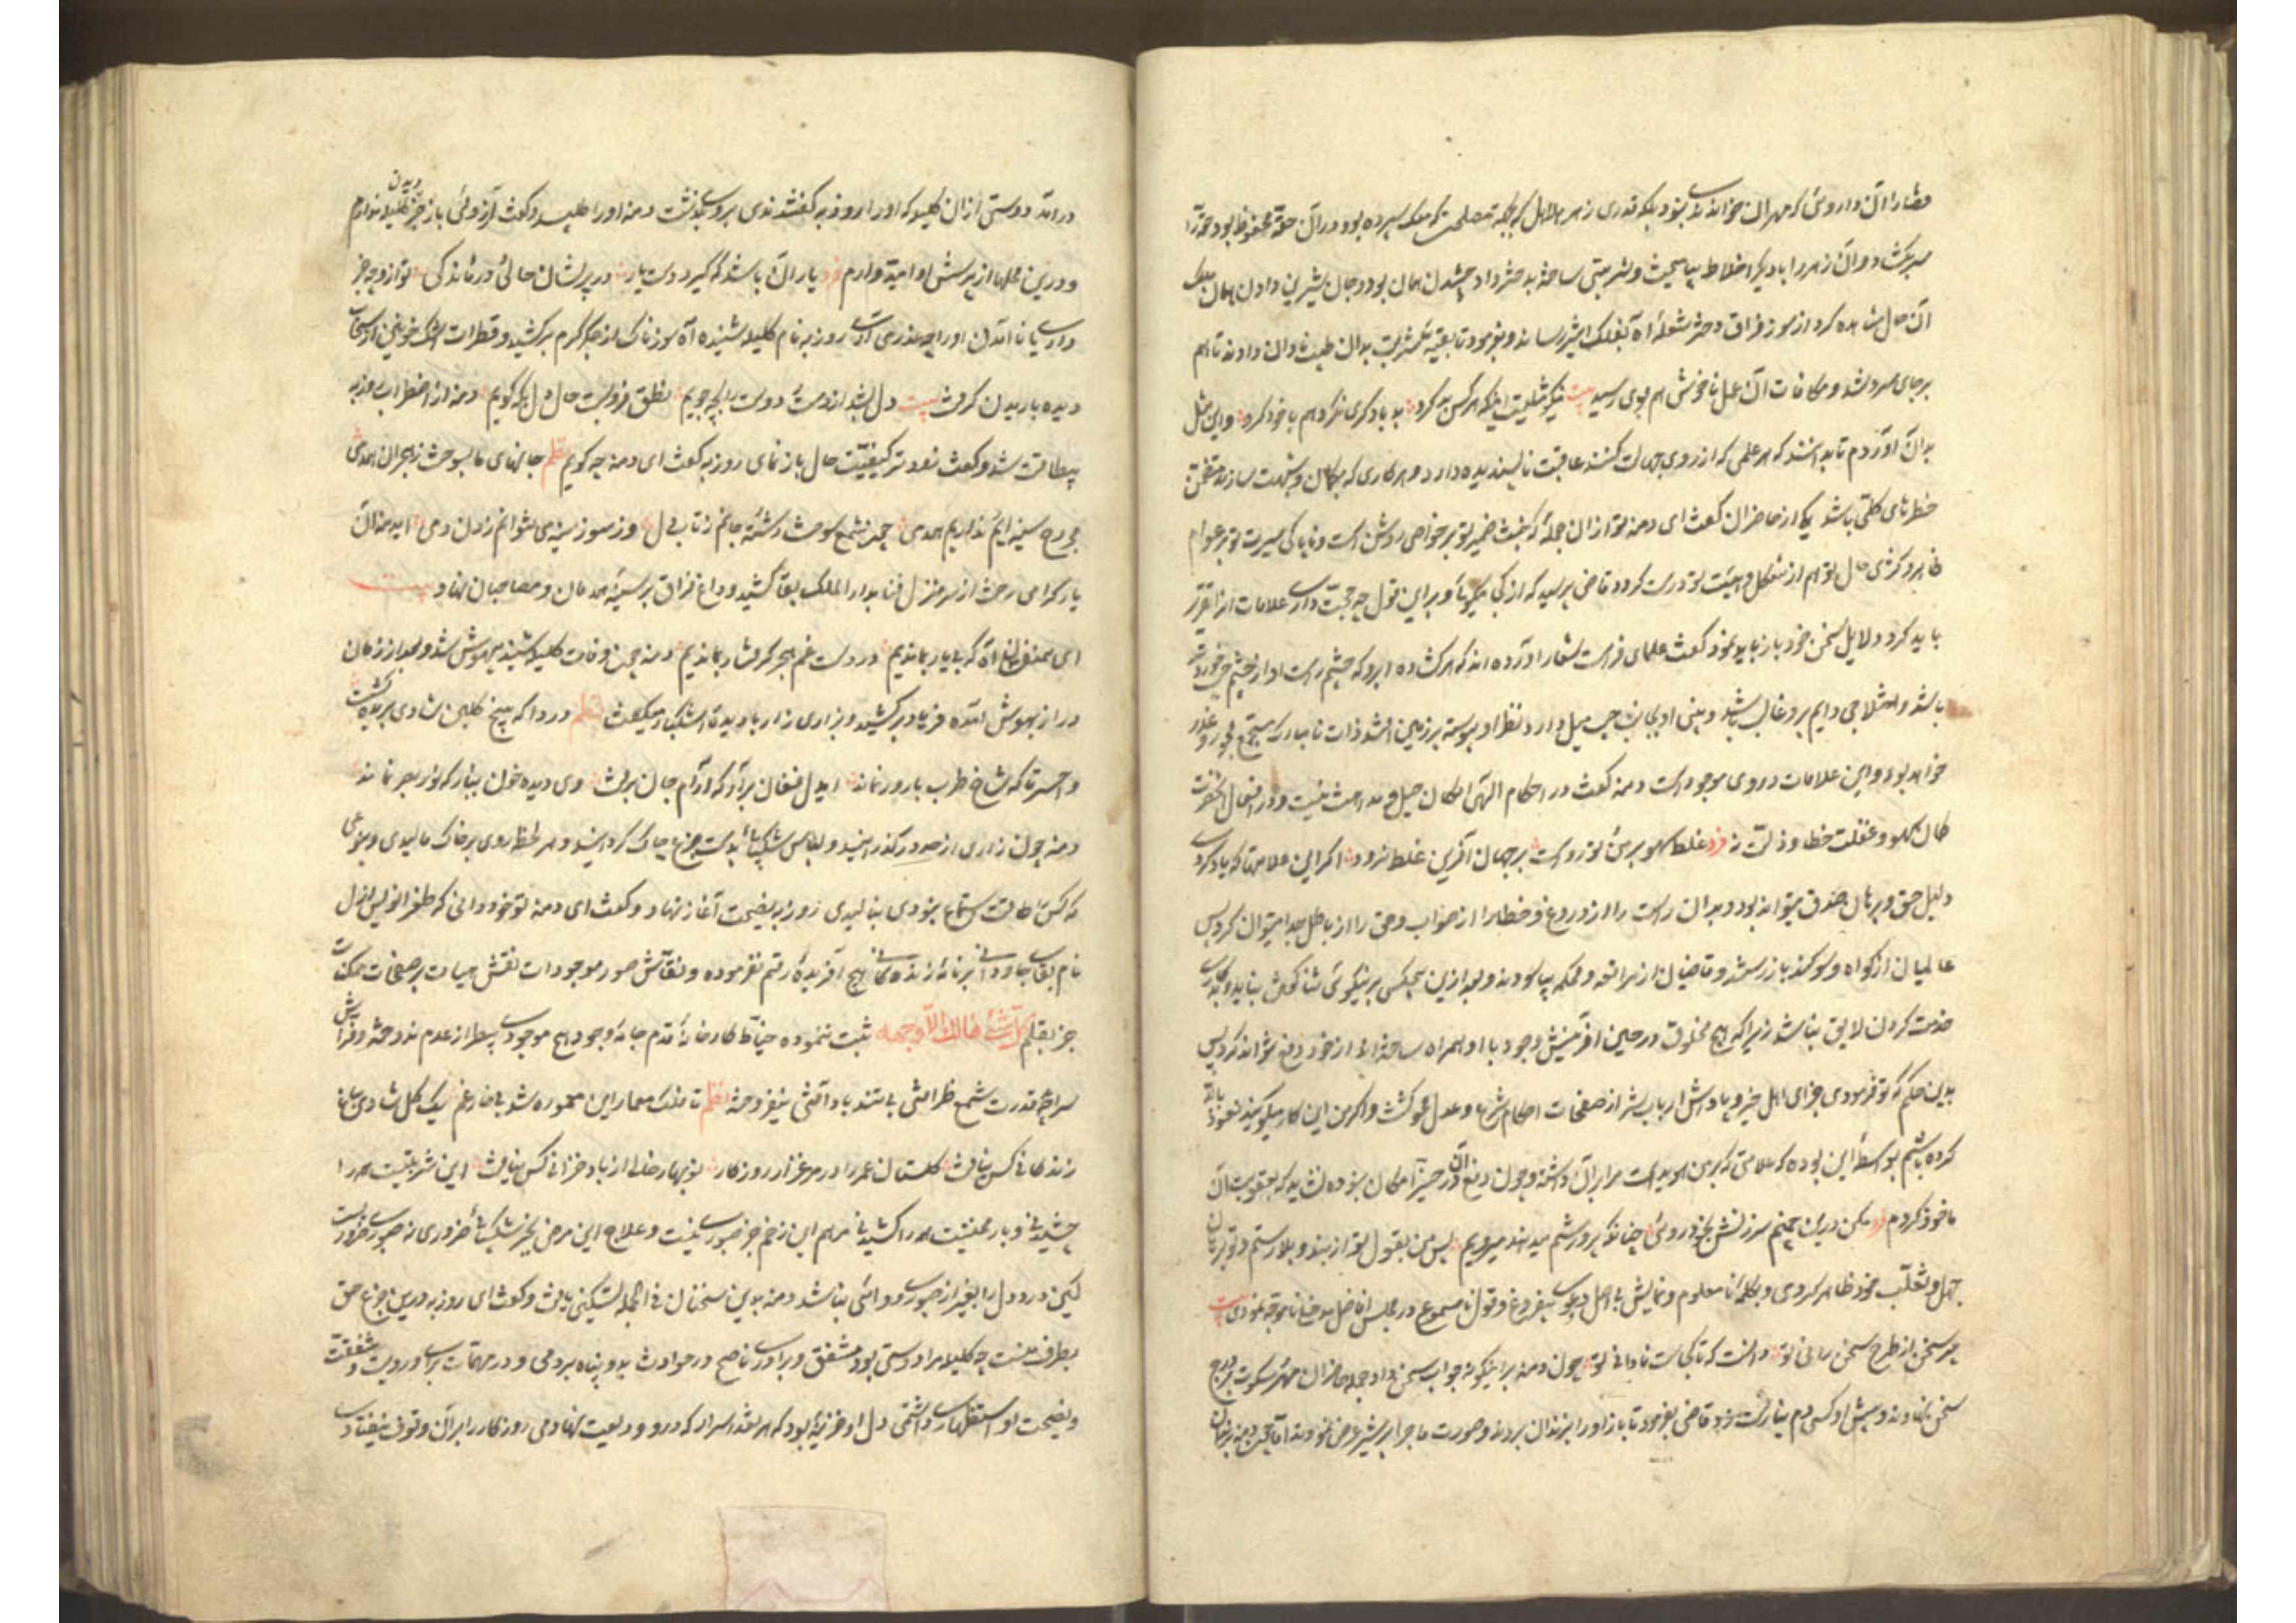 قضا را آن داروئی که مهران خوانند نبود بلکه قدری زهر هلاهل که بجهة مصلحت که ملک سپرده بود در آن حقه محفوظ بود حقه را
سر بگشاد و آن زهر را با دیگر اخلاط بیامیخت و شربتی ساخته بدختر داد چشیدن همان بود و جان شیرین دادن همان ملک
آن حال مشاهده کرد از سوز فراق دختر شعلهٔ آه بفلک اثیر رسانید و بفرمود تا بقیهٔ شربت بدان طبیب نادان دادند تا هم
بر جای سرد شد و مکافات آن عمل ناخوش هم بوی رسید بیت نیکو مثلیست اینکه هر کس بد کرد بد با دگری نکرد هم با خود کرد و این مثل
بدان آوردم تا بدانند که هر عملی که از روی جهالت کنند عاقبت ناپسندیده دارد و هر کاری که بگمان و شبهت سازند متضمن
خطرهای کلی باشد یکی از حاضران گفت ای دمنه تو از آن جمله که خبث ضمیر تو بر خواص روشن است و ناپاکی سیرت تو بر عوام
ظاهر و کژی حال تو هم از شکل و هیئت تو درست گردد قاضی پرسید که از کجا میگوئی و بر این قول چه حجت داری علامات آنرا تقریر
باید کرد و دلایل سخن خود باز باید نمود گفت علمای فراست آورده اند که هر گشاده ابرو که چشم راست او از چشم چپ خوردتر
باشد و اختلاجی دایم برو غالب باشد و بینی او بجانب چپ میل دارد و نظر او پیوسته بر زمین افتد ذات نامبارک او مجمع فجور و غدر
خواهد بود و این علامات در وی موجود است دمنه گفت در احکام الهی امکان حیل و مداهنت نیست و در افعال آنحضرت
گمان سهو و غفلت خطا و زلت نه فرد غلط و سهو بر من و تو رواست بر جهان آفرین غلط نرود اگر این علامتها که یاد کردی
دلیل حق و برهان صدق میتواند بود و بدان راست را از دروغ و خطا را از صواب و حق را از باطل جدا میتوان کرد پس
عالمیان از گواه و سوگند باز رستند و قاضیان از مرافعه و محکمه بیاسودند و بعد ازین هیچکس بر نیکوئی ثنا گفتن نباید و بر بدی
مذمت کردن لایق نباشد زیرا که هیچ مخلوق در حین آفرینش وجود با او همراه ساخته اند از خود دفع نتواند کرد پس
بدین حکم که تو فرمودی جزای اهل خیر و پاداش ارباب شر از صفحات احکام شرع و عدل محو گشت و اگر من این کار میگویند نعوذ بالله
کرده باشم بواسطهٔ این بوده که علامتی که بر من هویداست مرا بر آن داشته و چون دفع آن در حیز امکان نبوده نشاید که بعقوبت آن
ماخوذ گردم فرد مکن درین چمنم سرزنش بخودروئی چنانکه پرورشم میدهند میرویم پس من بقول تو از بند و بلا رستم و تو برهان
جهل و تقلب خود ظاهر کردی و بکلمهٔ نامعلوم و نمایش بی اصل و دعوی بیفروغ و قول نامسموع در مجلس افاضل مدخلی ناموجه نمودی بیت
هر سخن از طرح سخن رانی تو دانست که تا کجاست نادانی تو چون دمنه براینگونه جواب سخن داد جمله حاضران مهر سکوت بر درج
سخن نهادند و پیش او کسی دم نیارست زد قاضی بفرمود تا باز او را بزندان بردند و صورت ماجرا بر شیر عرض نمودند اما چون دمنه بزندان
درآمد دوستی از آن کلیله که او را روزبه گفتندی بر وی بگذشت دمنه او را طلبید و گفت آرزوئی باز جز دیدن کلیله ندارم
و درین محلها از پرسش او امید وارم فرد یار آن باشد که گیرد دست یار در پریشان حالی و درماندگی تو از وی چه خبر
داری یا نا آمدن او را چه عذری است روزبه نام کلیله شنیده آه سوزناک از جگر گرم برکشید و قطرات اشک خونین از سحاب
دیده باریدن گرفت بیت دل شد از دست دوست را بچه جویم نطق فروبست حال دل بکه گویم دمنه از اضطراب روزبه
بیطاقت شد و گفت زودتر کیفیت حال باز نمای روزبه گفت ای دمنه چه گویم نظم جانهای ما بسوخت ز هجران همدمی
مجروح سینه ایم و نداریم مرهمی چون شمع سوخت رشتهٔ جانم ز تاب دل وز سوز سینه می نتوانم زدن دمی ای دمنه آن
یار گرامی رخت از سرمنزل فنا بدار الملک بقا کشید و داغ فراق بر سینهٔ همدمان و مصاحبان نهاد بیت
ای همنفسان آه که بی یار بماندیم در دست غم هجر گرفتار بماندیم دمنه چون وفات کلیله شنید بیهوش شد و بعد از زمان
دراز بهوش آمده فریاد برکشید و بزاری زار با دیدهٔ اشکبار میگفت نظم دردا که بیخ گلبن شادی بریده گشت
واحسرتا که شاخ طرب بارور نماند ای دل فغان برآر که آرام جان برفت وی دیده خون ببار که نور بصر نماند
دمنه چون زاری از حد درگذرانید و لباس شکیبائی بدست جزع چاک گردانید و هر لحظه روی بر خاک مالیدی و بنوعی
که کس را طاقت استماع نبودی بنالیدی روزبه بنصیحت آغاز نهاد و گفت ای دمنه تو خود دانی که طغرانویس ازل
نام بقای جاودانی بر نامهٔ زندگانی هیچ آفریده رقم نفرموده و نقاش صور موجودات نقش حیات بر صفحات ممکنات
جز بقلم کل شئ هالک الا وجهه ثبت ننموده خیاط کارخانهٔ قدم جامهٔ وجود هیچ موجودی بیطراز عدم ندوخته و فراش
سراچهٔ قدرت شمع طرافتی بی تند باد آفتی نیفروخته نظم تا فلک معمار این معموره شد بی خار غم یک گل شادی بباغ
زندگانی کس نیافت گلستان عمر را در مرغزار روزگار نوبهار خالی از باد خزانی کس نیافت این شربتیست همه را
چشیدنی و بار محنتیست همه را کشیدنی مرهم این زخم جز صبوری نیست و علاج این مرض بجز شکیبائی ضروری نه صبوری ضرورت
لیکن درد دل را بغیر از صبوری دوائی نباشد دمنه بدین سخنان فی الجمله تسکینی یافت و گفت ای روزبه درین جزع حق
بطرف منست چه کلیله مرا دوستی بود مشفق و برادری ناصح در حوادث بدو پناه بردمی و در مهمات برای و رویت و شفقت
و نصیحت او استظهاری داشتمی دل او خزینهٔ بود که هر نقد اسرار که درو ودیعت نهادمی روزگار را بر آن وقوف نیفتادی